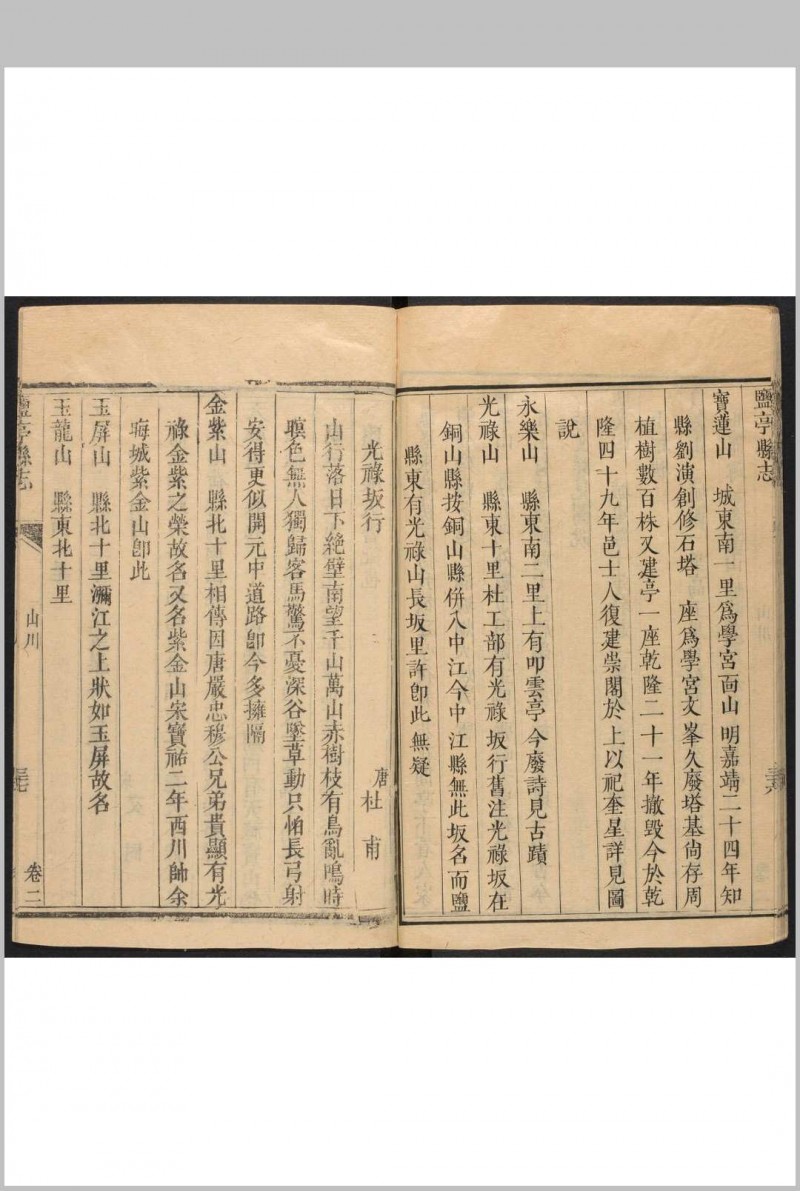 鹽亭縣志
三六
寶蓮山 城東南一里爲學宮面山明嘉靖二十四年知
縣劉演創修石塔 座爲學宮文峯久廢塔基尙存周
植樹數百株又建亭一座乾隆二十一年撤毀今於乾
隆四十九年邑士人復建崇閣於上以祀奎星詳見圖
說
永樂山 縣東南二里上有叩雲亭今廢詩見古蹟
光祿山 縣東十里杜工部有光祿坂行舊注光祿坂在
銅山縣按銅山縣倂入中江今中江縣無此坂名而鹽
縣東有光祿山長坂里許卽此無疑
光祿坂行 唐杜甫
山行落日下絕壁南望千山萬山赤樹枝有鳥亂鳴時
暝色無人獨歸客馬驚不憂深谷墜草動只怕長弓射
安得更似開元中道路卽今多擁隔
金紫山 縣北十里相傳因唐嚴忠穆公兄弟貴顯有光
祿金紫之榮故名又名紫金山宋寶祐二年西川帥余
晦城紫金山卽此
玉屏山 縣北十里瀰江之上狀如玉屏故名
玉龍山 縣東北十里
鹽亭縣志 山川 卷二